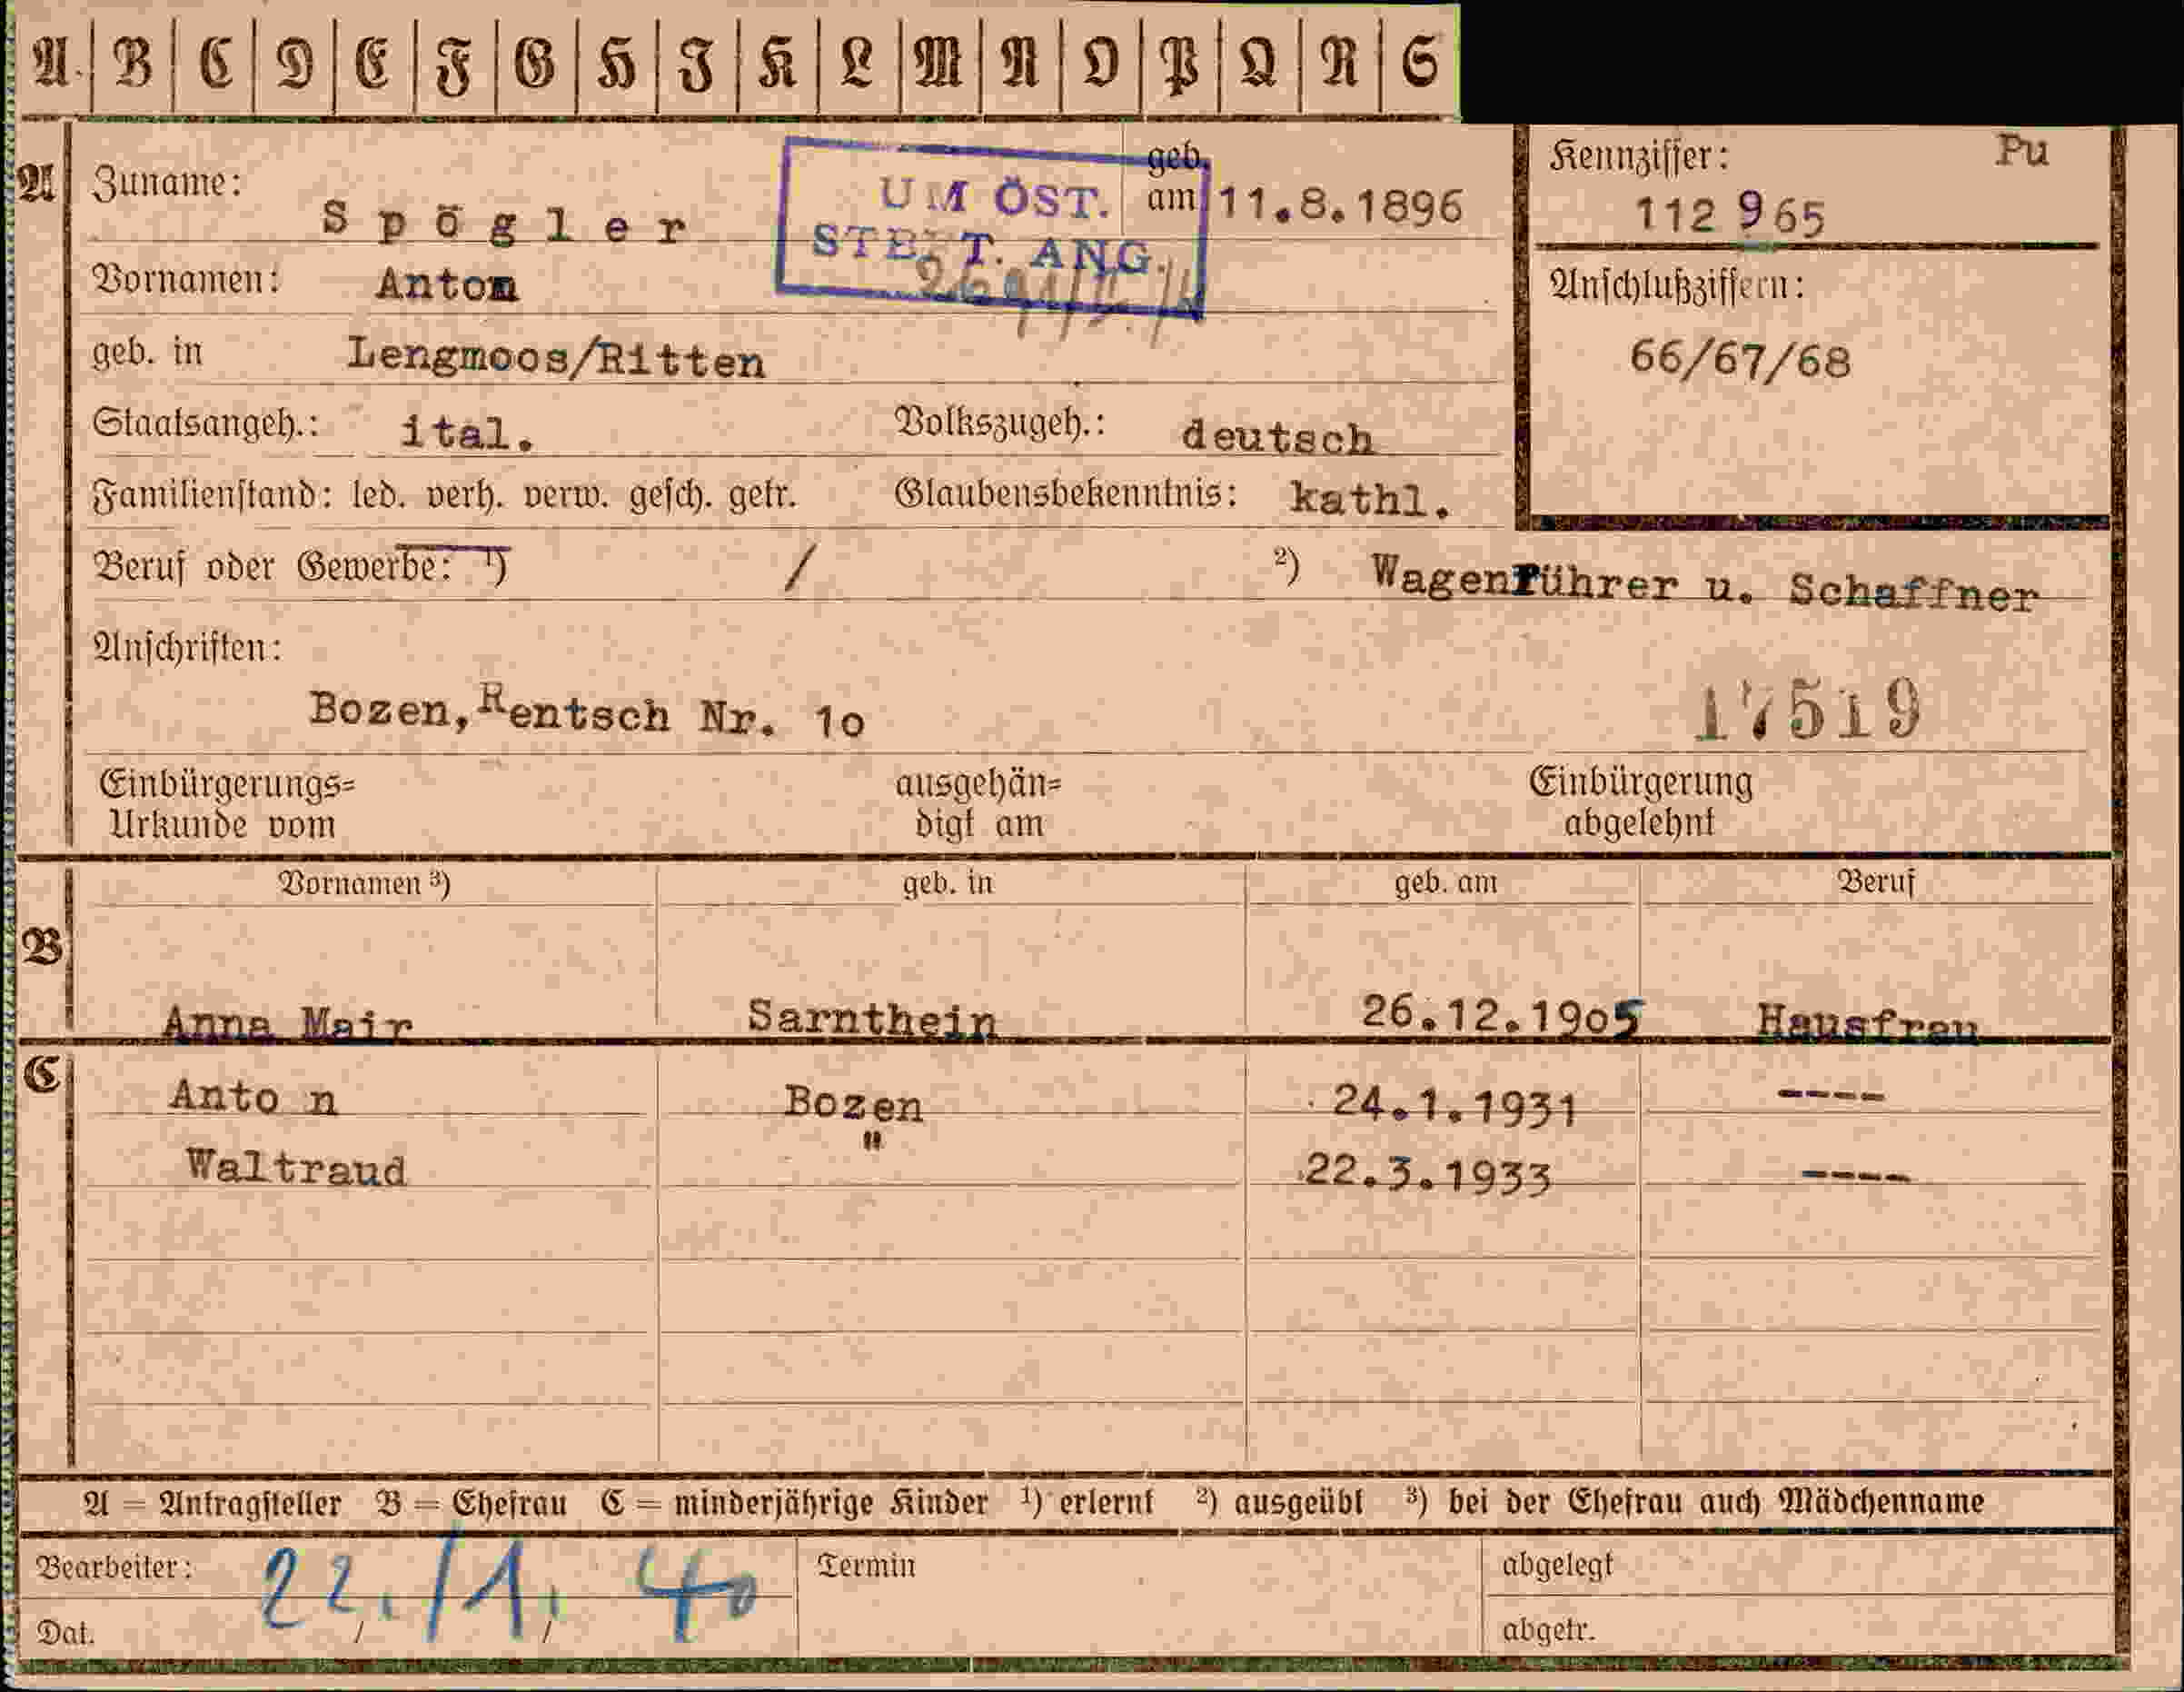 A B C D E F G H J K L M N O P Q R S
A Zuname: Spögler
UM ÖST.
STEL T. ANG.
geb. am 11.8.1896
Kennziffer: Pu
112 965
Vornamen: Anton
Anschlußziffern:
66/67/68
geb. in Lengmoos/Ritten
Staatsangeh.: ital. Volkszugeh.: deutsch
Familienstand: led. verh. verw. gesch. getr. Glaubensbekenntnis: kathl.
Beruf oder Gewerbe: ¹) / ²) Wagenführer u. Schaffner
Anschriften:
Bozen, Rentsch Nr. 10 17519
Einbürgerungs= ausgehän= Einbürgerung
Urkunde vom digt am abgelehnt
Vornamen ³) geb. in geb. am Beruf
B
Anna Mair Sarnthein 26.12.1905 Hausfrau
C
Anto n Bozen 24.1.1931 ----
Waltraud " 22.3.1933 ----
A = Antragsteller B = Ehefrau C = minderjährige Kinder ¹) erlernt ²) ausgeübt ³) bei der Ehefrau auch Mädchenname
Bearbeiter: 22./1. 40 Termin abgelegt
Dat. abgetr.